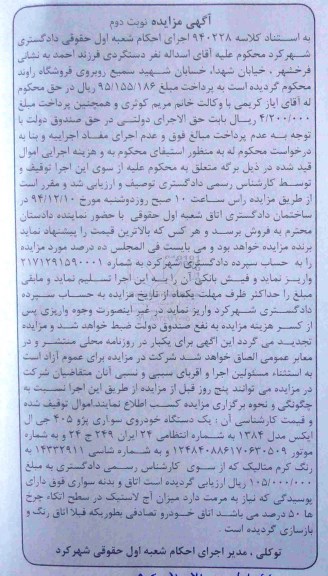 آگهی مزایده نوبت دوم
به استناد کلاسه ۹۴۰۲۲۸ اجرای احکام شعبه اول حقوقی دادگستری
شهرکرد محکوم علیه آقای اسداله نفر دستگردی فرزند احمد به نشانی
فرخشهر ، خیابان شهدا، خیابان شهید سمیع روبروی فروشگاه راوند
محکوم گردیده است به پرداخت مبلغ ۹۵/۱۵۵/۱۸۶ ریال در حق محکوم
له آقای ایاز کریمی با وکالت خانم مریم کوثری و همچنین پرداخت مبلغ
۴/۲۰۰/۰۰۰ ریال بابت حق الاجرای دولتی در حق صندوق دولت با
توجه به عدم پرداخت مبالغ فوق و عدم اجرای مفاد اجراییه و بنا به
درخواست محکوم له به منظور استیفای محکوم به و هزینه اجرایی اموال
قید شده در ذیل برگه متعلق به محکوم علیه از سوی این اجرا توقیف و
توسط کارشناس رسمی دادگستری توصیف و ارزیابی شد و مقرر است
از طریق مزایده راس ساعت ۱۰ صبح روز دوشنبه مورخ ۹۴/۱۲/۱۰ در
ساختمان دادگستری اتاق شعبه اول حقوقی با حضور نماینده دادستان
محترم به فروش برسد و هر کس که بالاترین قیمت را پیشنهاد نماید
برنده مزایده خواهد بود و می بایست فی المجلس ده درصد مورد مزایده
را به حساب سپرده دادگستری شهرکرد به شماره ۲۱۷۱۲۹۱۵۹۰۰۰۱
واریز نماید و فیش بانکی آن را به این اجرا تسلیم نماید و مابقی
مبلغ را حداکثر ظرف مهلت یکماه از تاریخ مزایده به حساب سپرده
دادگستری شهرکرد واریز نماید در غیر اینصورت وجوه واریزی پس
از کسر هزینه مزایده به نفع صندوق دولت ضبط خواهد شد و مزایده
تجدید می گردد این آگهی برای یکبار در روزنامه محلی منتشر و در
معابر عمومی الصاق خواهد شد شرکت در مزایده برای عموم آزاد است
به استثناء مسئولین اجرا و اقربای سببی و نسبی آنان متقاضیان شرکت
در مزایده می توانند پنج روز قبل از مزایده از طریق این اجرا نسبت به
چگونگی و نحوه برگزاری مزایده کسب اطلاع نمایند.اموال توقیف شده
و قیمت کارشناسی آن : یک دستگاه خودروی سواری پژو ۴۰۵ جی ال
ایکس مدل ۱۳۸۴ به شماره انتظامی ۲۴ ایران ۲۴۹ ج ۲۴ و به شماره
موتور ۱۲۴۸۴۰۸۸۶۱۷۰۶۳۰۵۰۹ و به شماره شاسی ۱۴۳۳۲۹۱۱ به
رنگ کرم متالیک که از سوی کارشناس رسمی دادگستری به مبلغ
۱۰۵/۰۰۰/۰۰۰ ریال ارزیابی گردیده است اتاق و بدنه سواری فوق دارای
پوسیدگی که نیاز به مرمت دارد میزان آج لاستیک در سطح اتکاء چرخ
ها ۵۰ درصد می باشد اتاق خودرو تصادفی بطوریکه قبلا اتاق رنگ و
بازسازی گردیده است .
توکلی ، مدیر اجرای احکام شعبه اول حقوقی شهرکرد